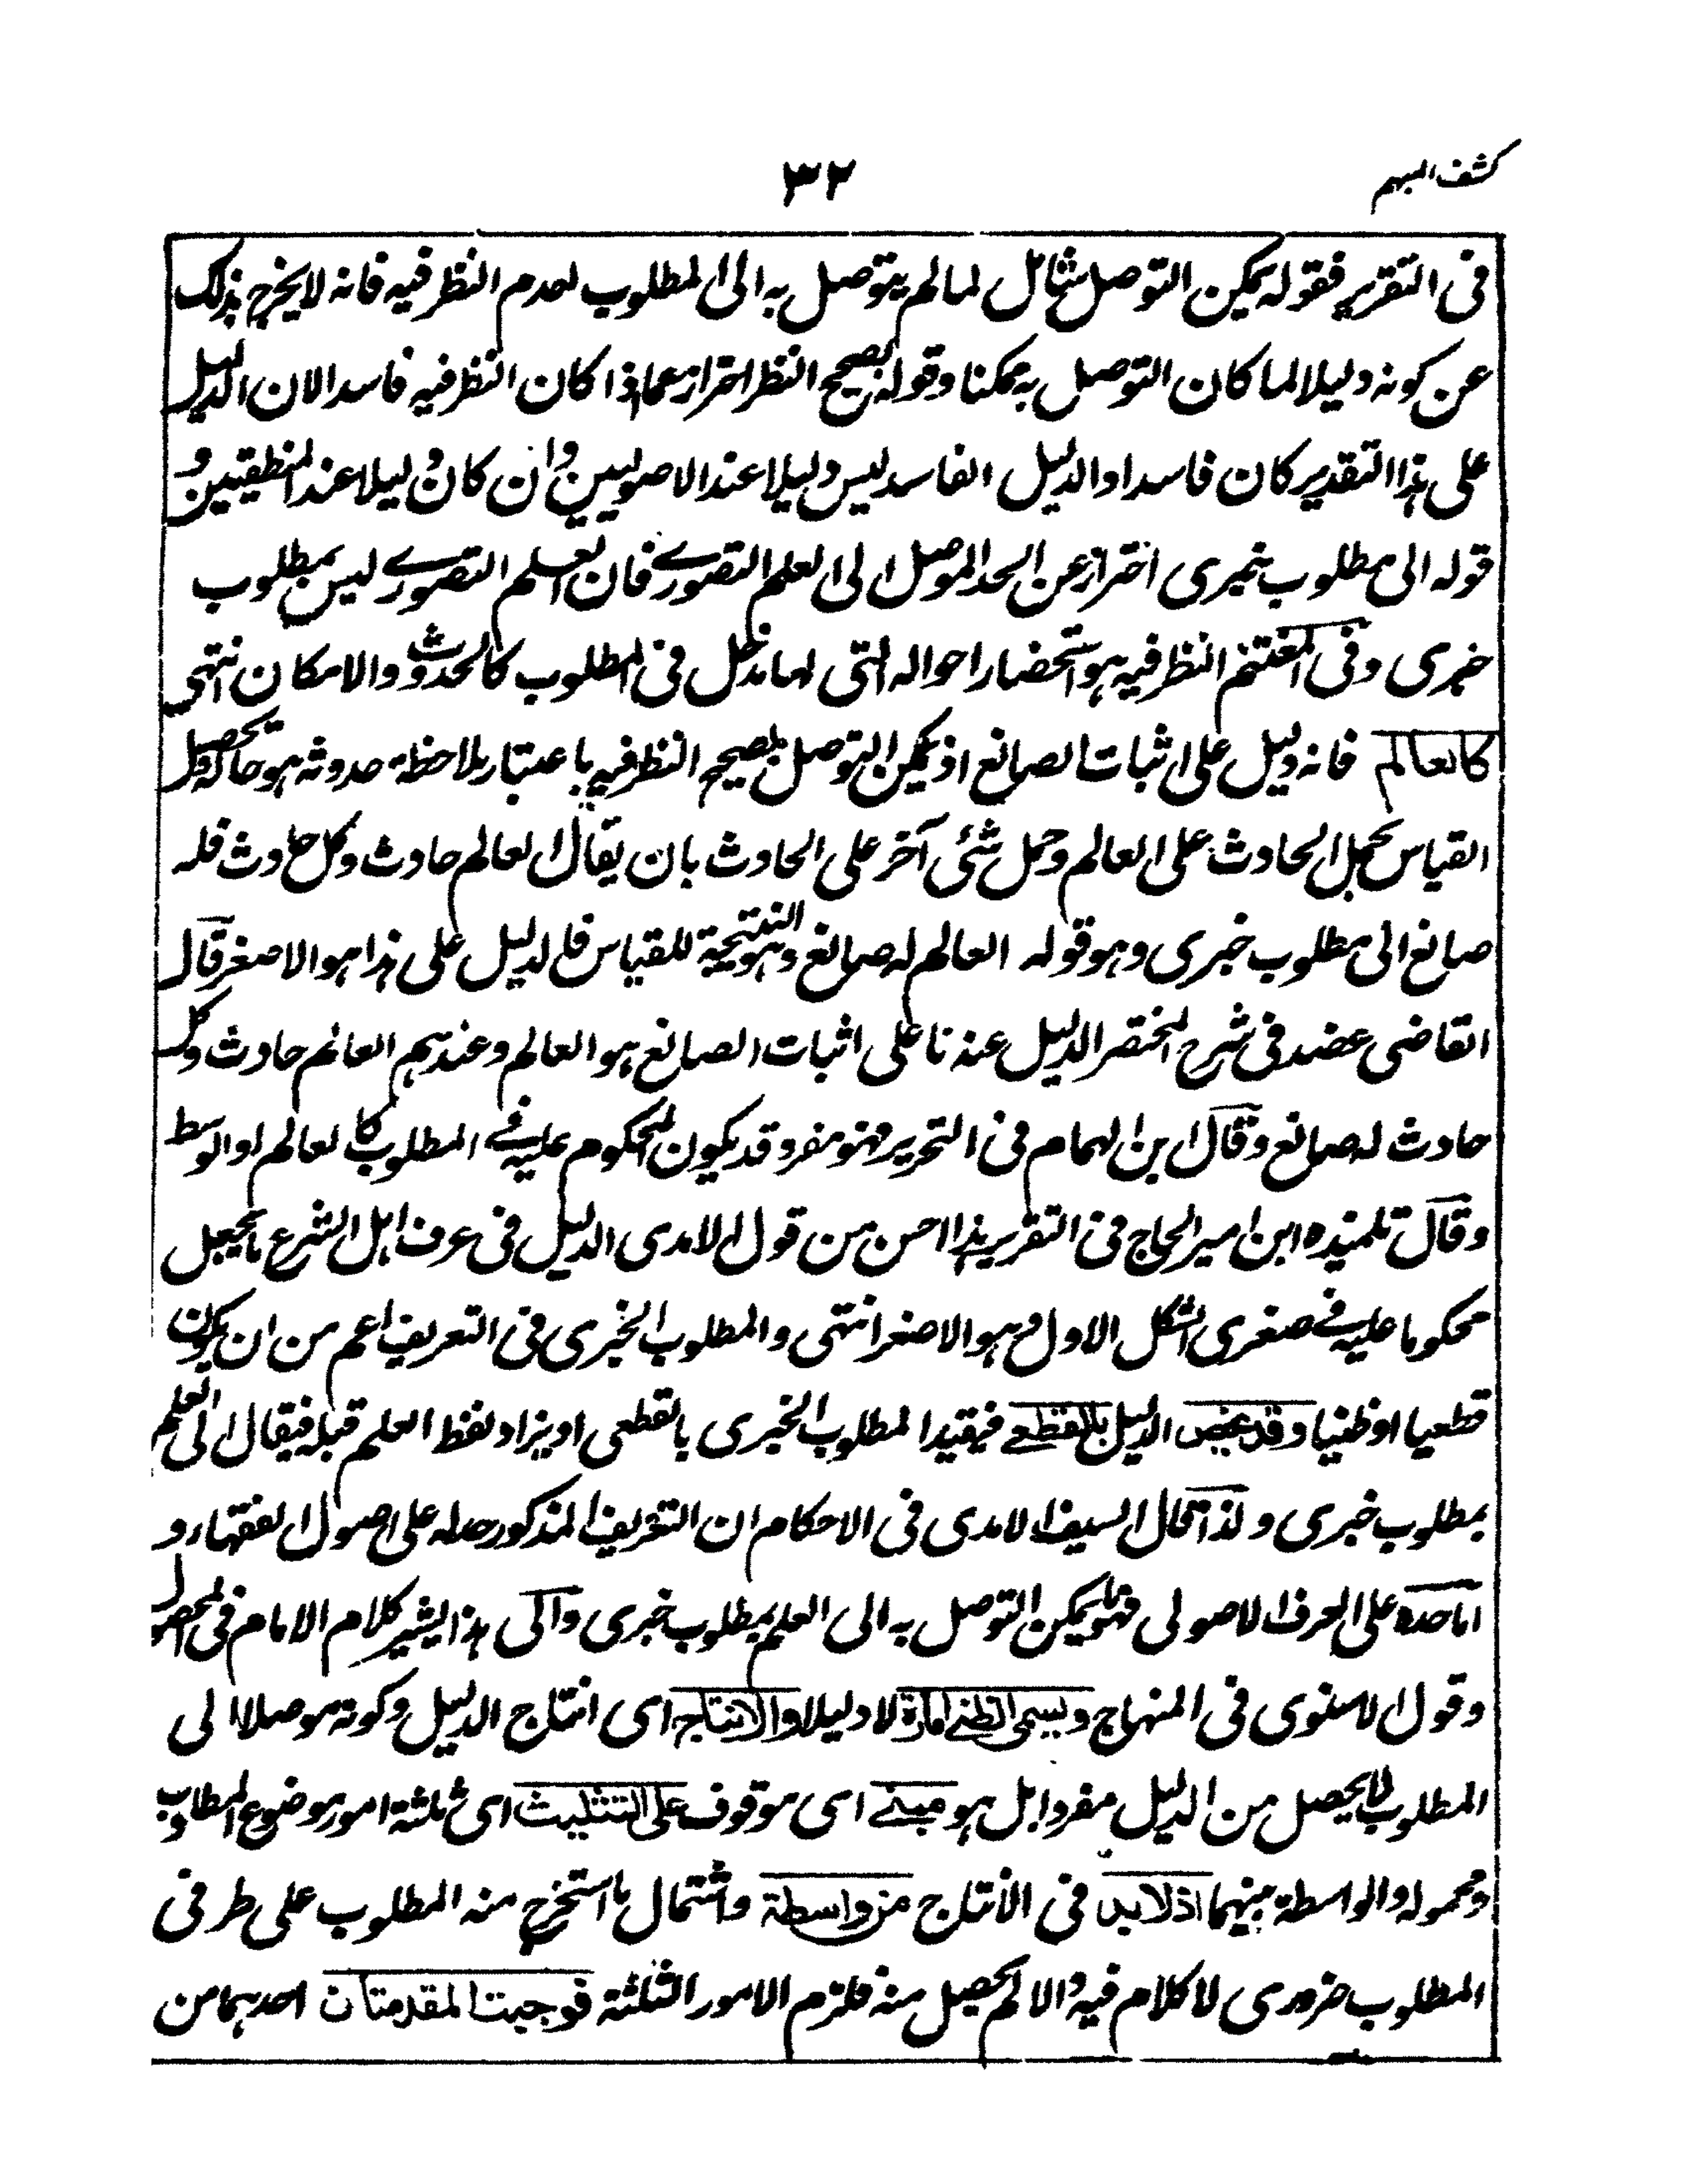 كشف المبهم
٣٢
فى التقرير فقوله يمكن التوصل شامل لما لم يتوصل به الى المطلوب لعدم النظر فيه فانه لا يخرج بذلك
عن كونه دليلا لما كان التوصل به ممكنا وقوله بصحيح النظر احتراز عما اذا كان النظر فيه فاسدا لان الدليل
على هذا التقدير كان فاسدا والدليل الفاسد ليس دليلا عند الاصوليين وان كان دليلا عند المنطقيين و
قوله الى مطلوب خبرى احتراز عن الحد الموصل الى العلم التصورے فان العلم التصورے ليس بمطلوب
خبرى وفى المغتنم النظر فيه هو استحضار احواله التى لها مدخل فى المطلوب كالحدوث والامكان انتهى
كالعالم فانه دليل على اثبات الصانع اذ يمكن التوصل بصحيح النظر فيه باعتبار ملاحظة حدوثه هو حاله وتحصيل
القياس بحمل الحادث على العالم وحمل شئ آخر على الحادث بان يقال العالم حادث وكل حادث فله
صانع الى مطلوب خبرى وهو قوله العالم له صانع وهو النتيجة للقياس فالدليل على هذا هو الاصغر قال
القاضى عضد فى شرح المختصر الدليل عندنا على اثبات الصانع هو العالم وعندهم العالم حادث وكل
حادث له صانع وقال ابن الهمام فى التحرير فهو مفرد قد يكون المحكوم عليه فے المطلوب كالعالم او الوسط
وقال تلميذه ابن امير الحاج فى التقرير هذا احسن من قول الامدى الدليل فى عرف اهل الشرع ما يجعل
محكوما عليه فے صغرى الشكل الاول وهو الاصغر انتهى والمطلوب الخبرى فى التعريف اعم من ان يكون
قطعيا او ظنيا وقد يخص الدليل بالقطعے فيقيد المطلوب الخبرى بالقطعى او يزاد لفظ العلم قبله فيقال الى العلم
بمطلوب خبرى ولذا قال السيف الامدى فى الاحكام ان التعريف المذكور حد له على اصول الفقهاء و
اما حده على العرف الاصولى فهو ما يمكن التوصل به الى العلم بمطلوب خبرى والى هذا يشير كلام الامام فى المحصول
وقول الاسنوى فى المنهاج ويسمى الظنے امارة لا دليلا والانتاج اى انتاج الدليل وكونه موصلا الى
المطلوب لا يحصل من الدليل مفردا بل هو مبنے اى موقوف على التثليث اى ثلثة امور موضوع المطلوب
ومحموله والواسطة بينهما اذ لابد فى الانتاج من واسطة واشتمال ما استخرج منه المطلوب على طرفى
المطلوب ضرورى لا كلام فيه والا لم يحصل منه فلزم الامور الثلثة فوجبت المقدمتان احدهما من